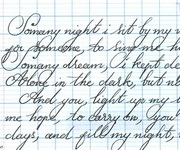 Somany night i sit by my w
for someone, to sing me hi
Somany dream, i kept de
Alone in the dark, but n
And you, light up my l
me hope, to carry on, you
days, and fill my night,